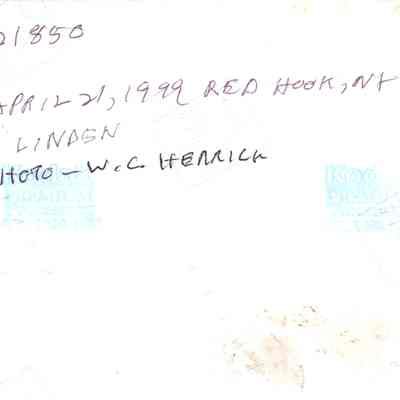 21850
APRIL 21, 1999 RED HOOK, NY
LINDEN
HOTO - W.C. HERRICK